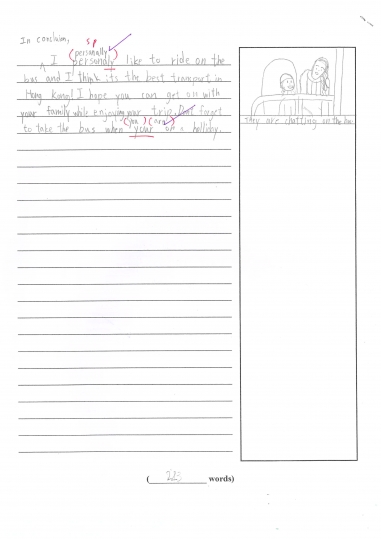 In conclusion,
sp
(personally)
I personaly like to ride on the
bus and I think its the best transport in
Hong Kong! I hope you can get on with
your family while enjoying your trip. Don't forget
(you) (are)
to take the bus when your on a holiday.
They are chatting on the bus.
( 223 words)